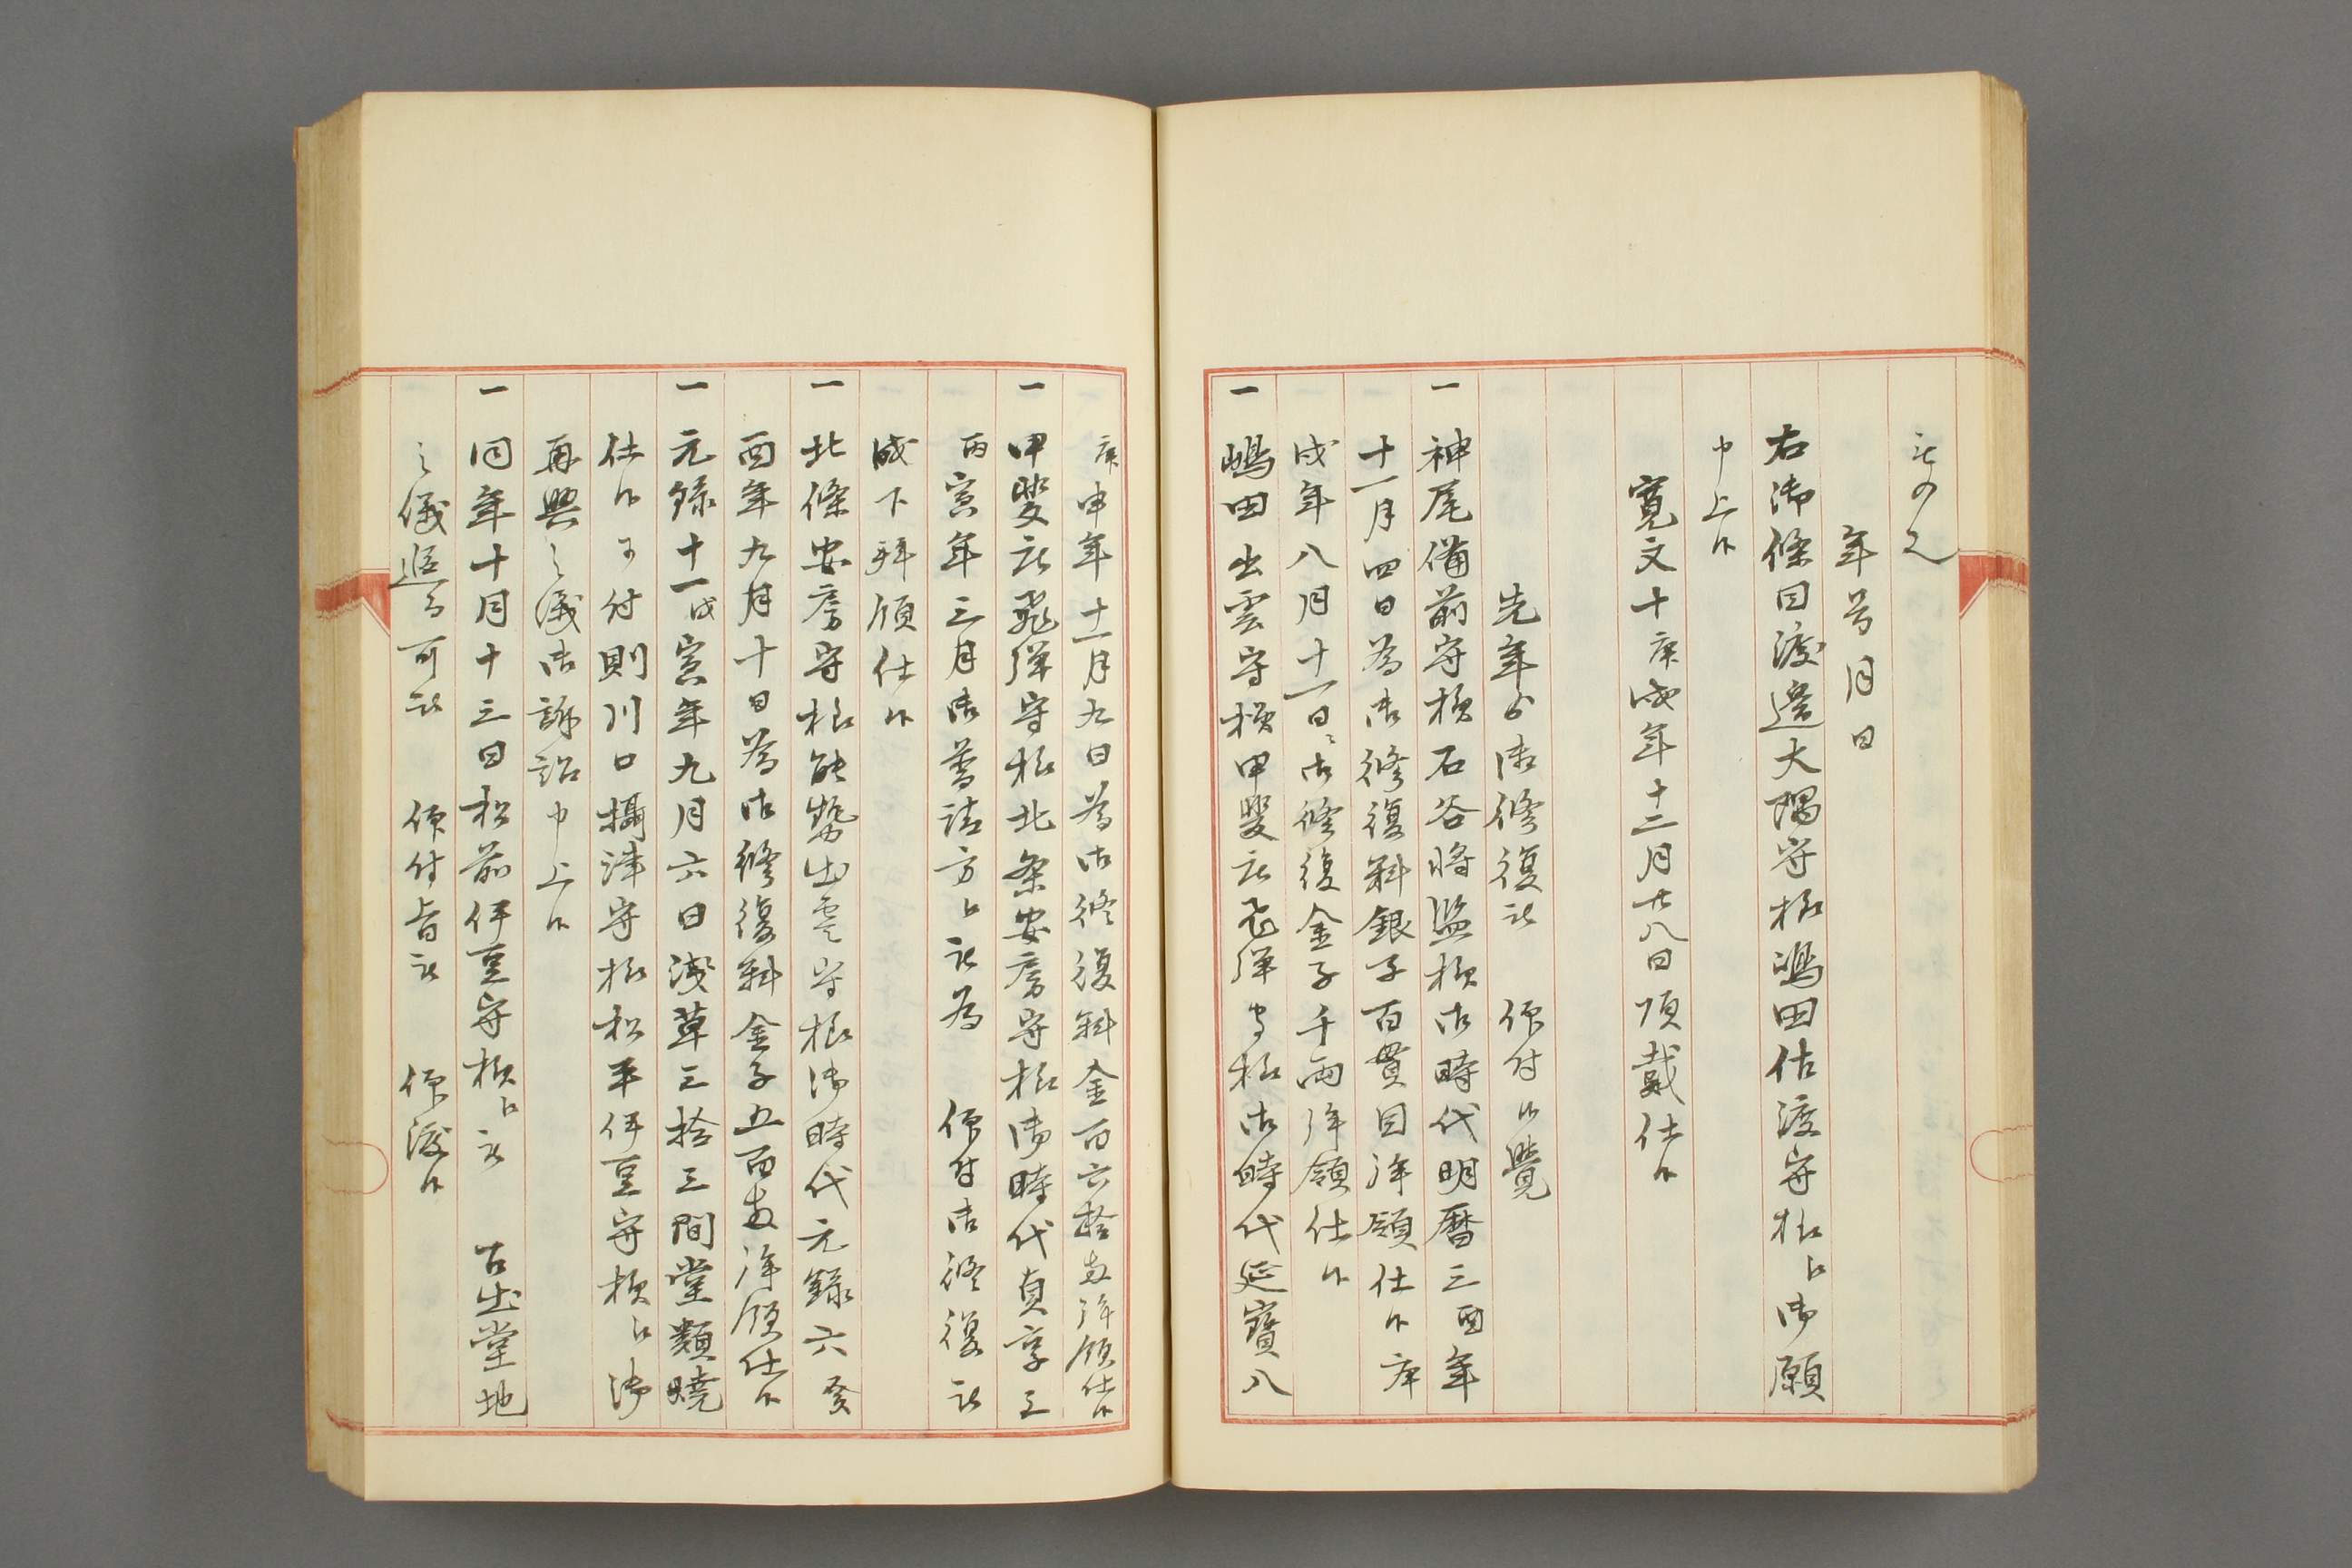 年号月日
右御條目渡邉大隅守様嶋田佐渡守様江御願
申上候
寛文十庚戌年十二月廿八日頂戴仕候
先年ゟ御修復被　仰付候覺
一　神尾備前守様石谷将監様御時代明暦三酉年
十一月四日為御修復料銀子百貫目拝領仕候庚
戌年八月十一日ニ御修復金子千両拝領仕候
一　嶋田出雲守様甲斐庄飛弾守様御時代延寳八
庚申年十一月九日為御修復料金百六拾両拝領仕候
一　甲斐庄飛弾守様北条安房守様御時代貞享三
丙寅年三月御普請方江被為　仰付御修復被
成下拝領仕候
一　北條安房守様能勢出雲守様御時代元録六癸
酉年九月十日為御修復料金子五百両拝領仕候
一　元録十一戊寅年九月六日浅草三拾三間堂類焼
仕候ニ付則川口攝津守様松平伊豆守様江御
再興之儀御訴詔申上候
一　同年十月十三日松前伊豆守様江被　　古出堂地
之儀追而可被　仰付旨被　仰渡候